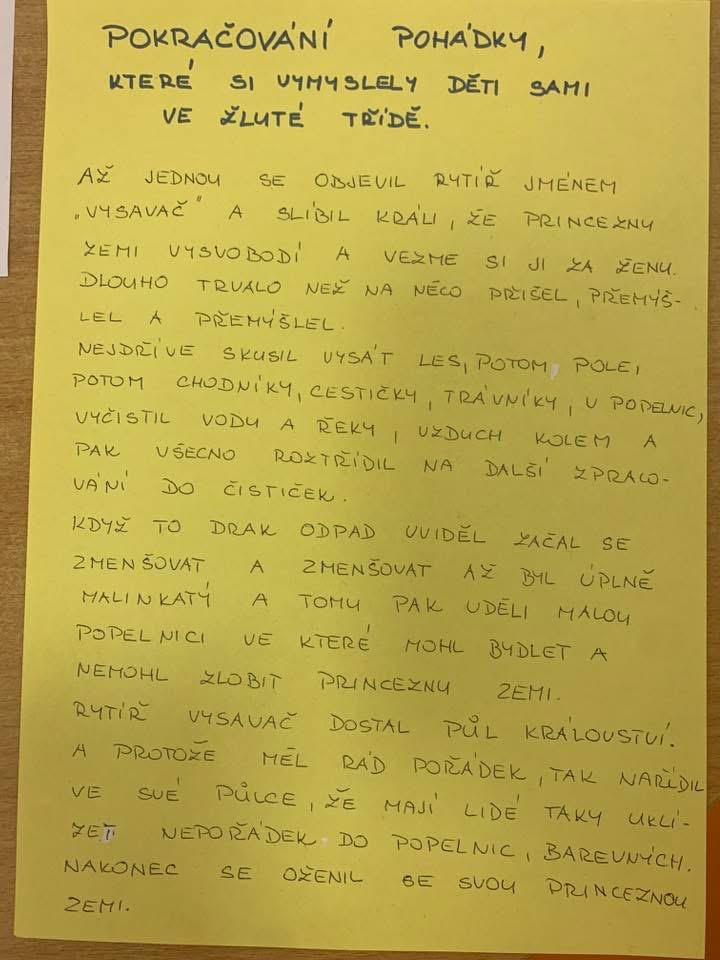 POKRAČOVÁNÍ POHÁDKY,
KTERÉ SI VYMYSLELY DĚTI SAMI
VE ŽLUTÉ TŘÍDĚ.
AŽ JEDNOU SE OBJEVIL RYTÍŘ JMÉNEM
„VYSAVAČ" A SLÍBIL KRÁLI, ŽE PRINCEZNU
ZEMI VYSVOBODÍ A VEZME SI JI ZA ŽENU.
DLOUHO TRVALO NEŽ NA NĚCO PŘIŠEL, PŘEMÝŠ-
LEL A PŘEMÝŠLEL.
NEJDŘÍVE SKUSIL VYSÁT LES, POTOM, POLE,
POTOM CHODNÍKY, CESTIČKY, TRÁVNÍKY, U POPELNIC,
VYČISTIL VODU A ŘEKY, VZDUCH KOLEM A
PAK VŠECNO ROZTŘÍDIL NA DALŠÍ ZPRACO-
VÁNÍ DO ČISTIČEK.
KDYŽ TO DRAK ODPAD UVIDĚL ZAČAL SE
ZMENŠOVAT A ZMENŠOVAT AŽ BYL ÚPLNĚ
MALINKATÝ A TOMU PAK UDĚLI MALOU
POPELNICI VE KTERÉ MOHL BYDLET A
NEMOHL ZLOBIT PRINCEZNU ZEMI.
RYTÍŘ VYSAVAČ DOSTAL PŮL KRÁLOVSTVÍ.
A PROTOŽE MĚL RÁD POŘÁDEK, TAK NAŘÍDIL
VE SVÉ PŮLCE, ŽE MAJÍ LIDÉ TAKY UKLÍ-
ZET NEPOŘÁDEK DO POPELNIC, BAREVNÝCH.
NAKONEC SE OŽENIL SE SVOU PRINCEZNOU
ZEMI.